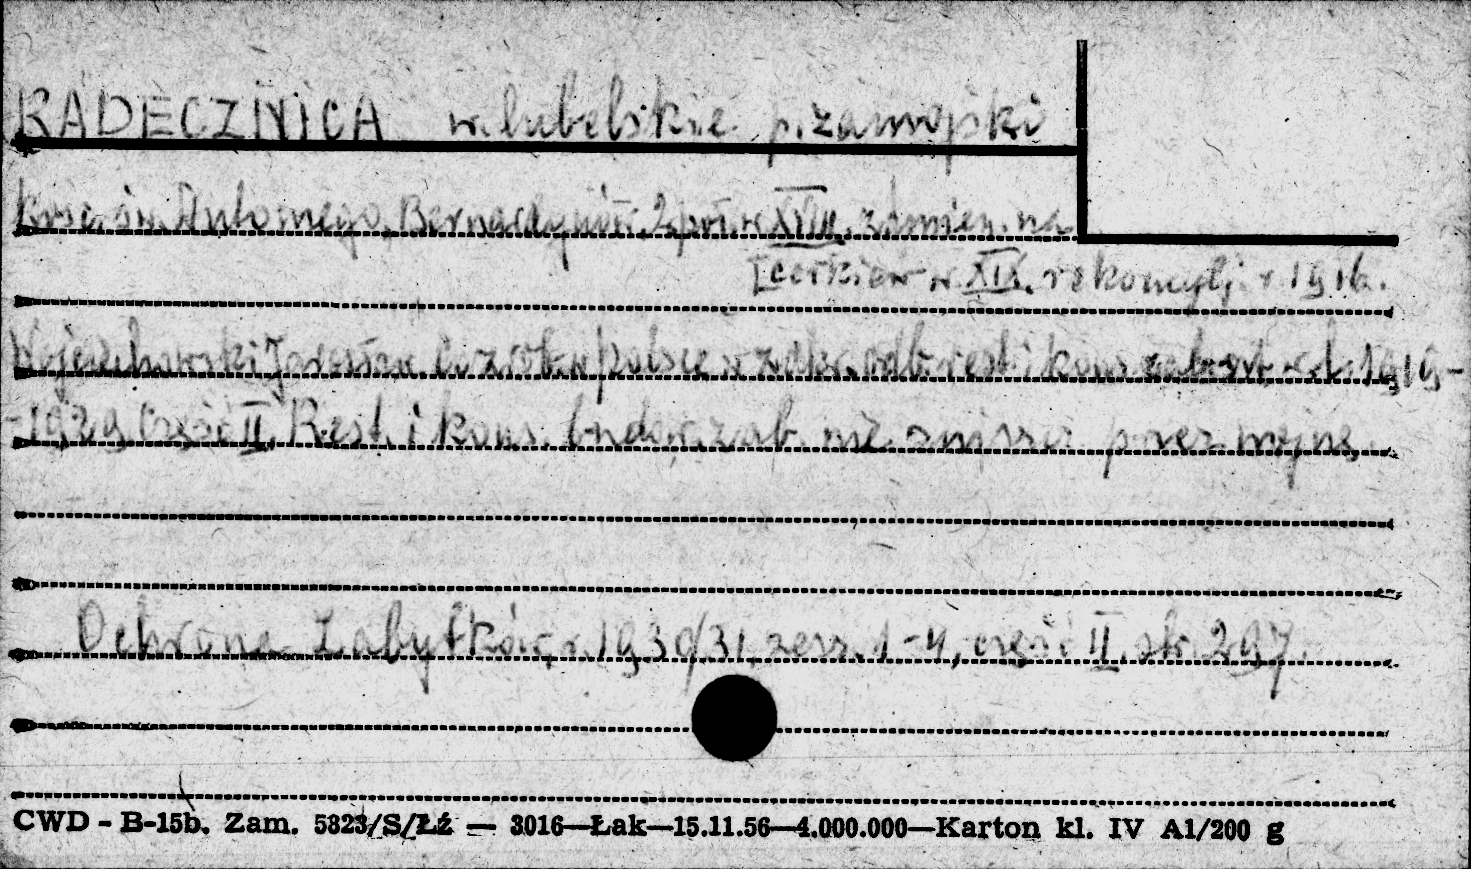 RADECZNICA w. lubelskie p. zamojski
Kośc. św. Antoniego, Bernardynów, 2 poł. w. XVIII, zamien. na
[cerkiew w XIX. rekoncyl. r. 1916.
Wojciechowski Jarosław w Polsce w zakr. odb. rest. i kons. 1919-
-1929 część II. Rest. i kons. budow. zab. nie zniszcz. przez wojnę.
Ochrona Zabytków, r. 1930/31, zesz. 1-4, część II. str. 297.
CWD - B-15b. Zam. 5823/S/Łź — 3016—Łak—15.11.56—4.000.000—Karton kl. IV A1/200 g